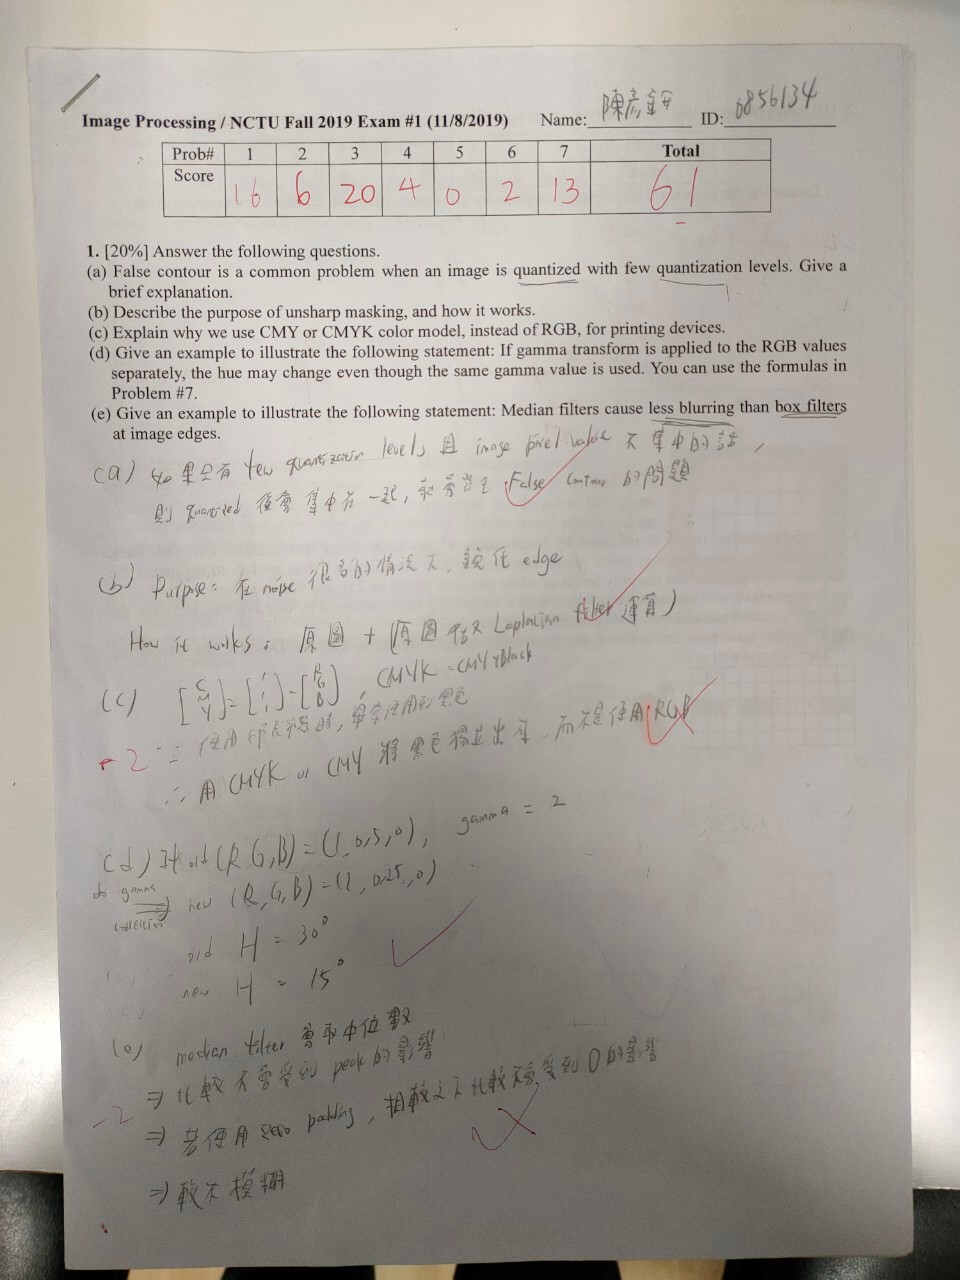 Image Processing / NCTU Fall 2019 Exam #1 (11/8/2019) Name: 陳彥 ID: 0856134
Prob# 1 2 3 4 5 6 7 Total
Score 16 6 20 4 0 2 13 61
1. [20%] Answer the following questions.
(a) False contour is a common problem when an image is quantized with few quantization levels. Give a
brief explanation.
(b) Describe the purpose of unsharp masking, and how it works.
(c) Explain why we use CMY or CMYK color model, instead of RGB, for printing devices.
(d) Give an example to illustrate the following statement: If gamma transform is applied to the RGB values
separately, the hue may change even though the same gamma value is used. You can use the formulas in
Problem #7.
(e) Give an example to illustrate the following statement: Median filters cause less blurring than box filters
at image edges.
(a) 如果只有 few quantization levels 且 image pixel value 不集中的話,
則 quantized 後會集中在一起, 就會產生 False Contour 的問題
(b) Purpose: 在 noise 很多的情況下, 銳化 edge
How it works: 原圖 + (原圖 Laplacian filter 運算)
(c) [C M Y] = [1 1 1] - [R G B], CMYK = CMY + Black
-2 ∵ 使用印表機時, 單色
∴ 用 CMYK or CMY 將黑色獨立出來, 而不是使用 RGB
(d) old (R,G,B) = (1,0.5,0), gamma = 2
do gamma
⇒ new (R,G,B) = (1,0.25,0)
old H = 30°
new H = 15°
(e) median filter 會取中位數
⇒ 比較不會受到 peak 的影響
-2
⇒ 若使用 zero padding, 相較之下比較不會受到 0 的影響
⇒ 較不模糊